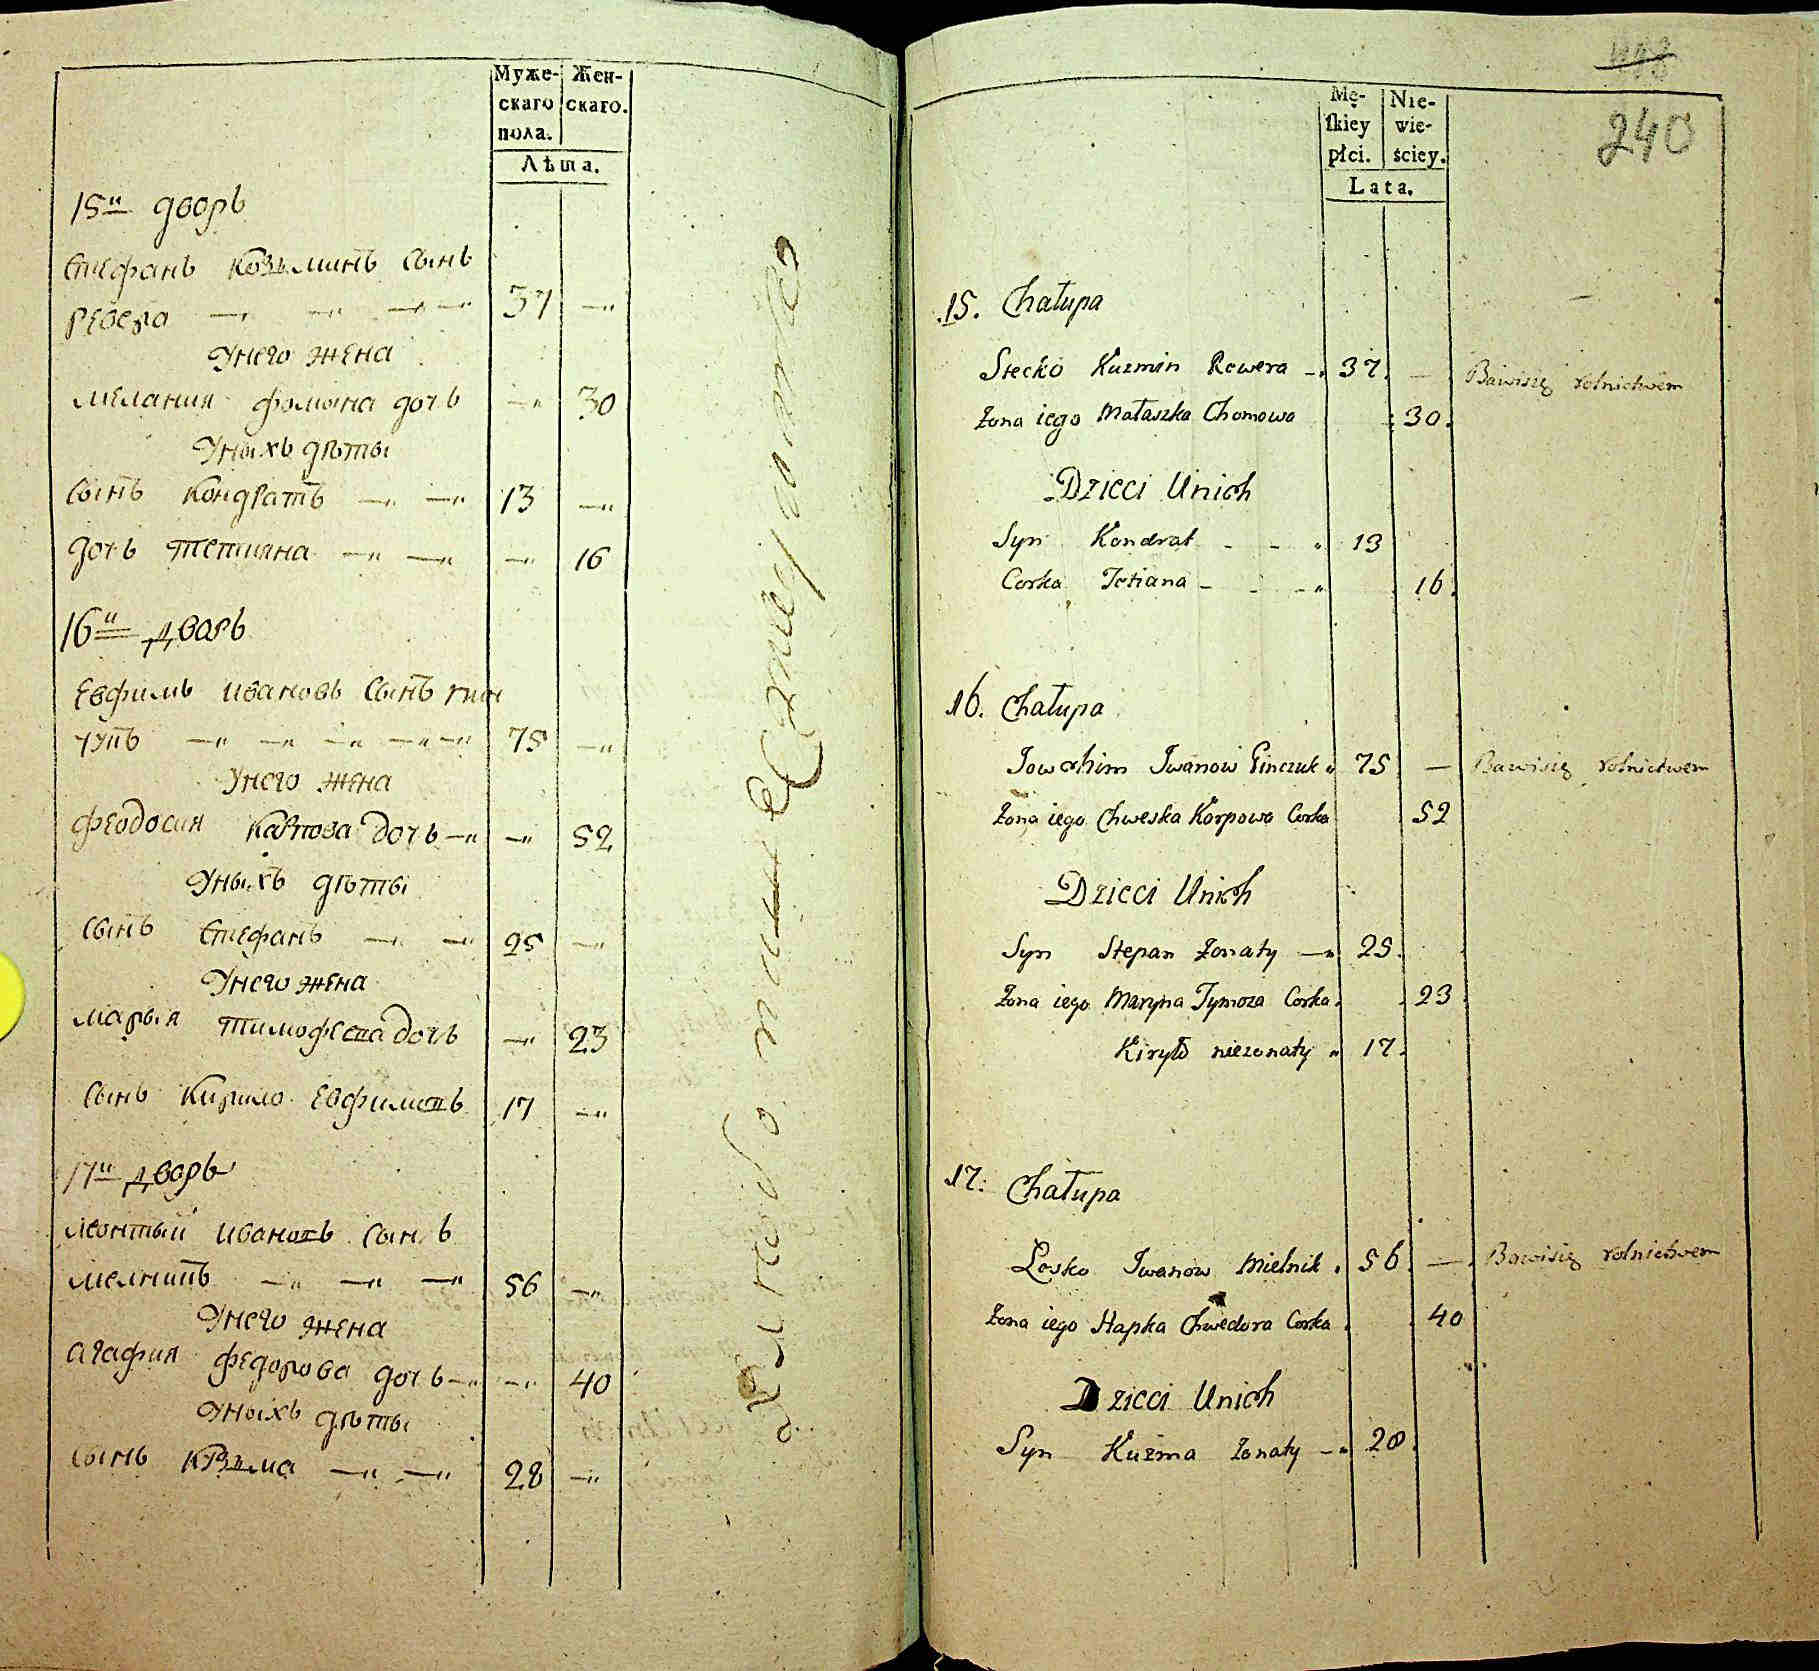 Муже-
скаго
пола.
Жен-
скаго.
Лѣта.
15й дворъ
Стефанъ Козьминъ сынъ
Ревера 37
Унего жена
Мелания Фомина дочь 30
Уныхъ дѣты
сынъ Кондратъ 13
дочь Тетиана 16
16й дворъ
Евфимъ Ивановъ сынъ Гин
чукъ 75
Унего жена
Феодосия Карпова дочь 52
Уныхъ дѣты
сынъ Стефанъ 25
Унего жена
Марыя Тимофеева дочь 23
сынъ Кирило Евфимовъ 17
17й дворъ
Леонтый Ивановъ сынъ
Мелникъ 56
Унего жена
Агафия Федорова дочь 40
Уныхъ дѣты
сынъ Козьма 28
240
Mę-
ſkiey
płci.
Nie-
wie-
ściey.
Lata.
15. Chałupa
Stecko Kuzmin Rewera 37. — Bawisię rolnictwem
Żona iego Małaszka Chomowa 30.
Dzieci Unich
Syn Kondrat 13
Corka Tetiana 16.
16. Chałupa
Jowchim Iwanow Ginczuk 75 — Bawisię rolnictwem
Żona iego Chweska Korpowa Corka 52
Dzieci Unich
Syn Stepan Żonaty 25.
Żona iego Maryna Tymosza Corka. 23.
Kiryło nieżonaty 17.
17. Chałupa
Lesko Iwanow Mielnik 56. — Bawisię rolnictwem
Żona iego Hapka Chwedora Corka 40
Dzieci Unich
Syn Kuźma Żonaty 28.